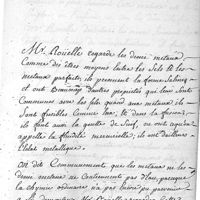 Mr. Rouelle regarde les demi métaux
Comme des êtres moyens entre les Sels & les
métaux parfaits; ils prennent la forme Saline,
et ont d'autres propriétés qui leur sont
Communes avec les sels quand aux métaux ils
sont fusibles comme eux, & dans la fusion,
ils ont aussi la goutte de Suif, ce qu'on
appelle la fluidité mercurielle, ils ont d'ailleurs
l'éclat métallique.
On dit Communément que les métaux ne les
demi métaux ne contiennent pas d'Eau, parceque
la chymie ordinaire n'a pas pu parvenir